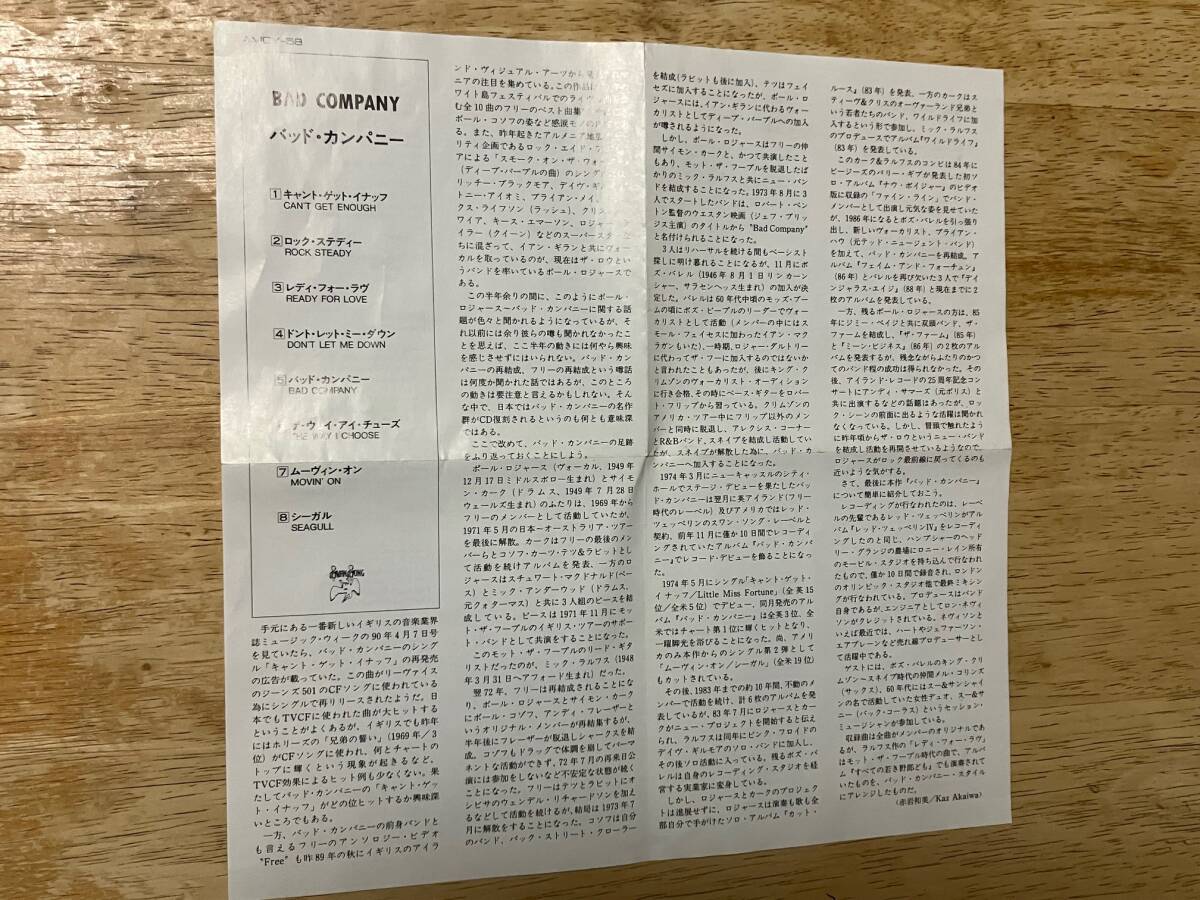 BAD COMPANY
バッド・カンパニー
1 キャント・ゲット・イナッフ
CAN'T GET ENOUGH
2 ロック・ステディー
ROCK STEADY
3 レディ・フォー・ラヴ
READY FOR LOVE
4 ドント・レット・ミー・ダウン
DON'T LET ME DOWN
5 バッド・カンパニー
BAD COMPANY
ウェイ・アイ・チューズ
THE WAY I CHOOSE
7 ムーヴィン・オン
MOVIN' ON
8 シーガル
SEAGULL
手元にある一番新しいイギリスの音楽業界
誌ミュージック・ウィークの90年4月7日号
を見ていたら、バッド・カンパニーのシング
ル「キャント・ゲット・イナッフ」の再発売
の広告が載っていた。この曲がリーヴァイス
のジーンズ501のCFソングに使われている
為にシングルで再リリースされたようだ。日
本でもTVCFに使われた曲が大ヒットする
ということがよくあるが、イギリスでも昨年
にはホリーズの「兄弟の誓い」(1969年/3
位)がCFソングに使われ、何とチャートの
トップに輝くという現象が起きるなど、
TVCF効果によるヒット例も少なくない。果
たしてバッド・カンパニーの「キャント・ゲッ
ト・イナッフ」がどの位ヒットするか興味深
いところでもある。
一方、バッド・カンパニーの前身バンドと
も言えるフリーのアンソロジー・ビデオ
"Free"も昨89年の秋にイギリスのアイラ
ンド・ヴィジュアル・アーツから
ニアの注目を集めている。この作品
ワイト島フェスティバルでのライヴ
む全10曲のフリーのベスト曲集
ポール・コゾフの姿など感涙モノの
る。また、昨年起きたアルメニア地震
リティ企画であるロック・エイド・ア
アによる「スモーク・オン・ザ・ウォー
(ディープ・パープルの曲)のシング
リッチー・ブラックモア、デイヴ・ギ
トニー・アイオミ、ブライアン・メイ、
クス・ライフソン(ラッシュ)、クリ
ワイア、キース・エマーソン、ロジャ
イラー(クイーン)などのスーパース
ちに混ざって、イアン・ギランと共にヴォー
カルを取っているのが、現在はザ・ロウとい
うバンドを率いているポール・ロジャースで
ある。
この半年余りの間に、このようにポール・
ロジャース〜バッド・カンパニーに関する話
題が色々と聞かれるようになっているが、そ
れ以前には余り彼らの噂も聞かれなかったこ
とを思えば、ここ半年の動きには何やら興味
を感じさせずにはいられない。バッド・カン
パニーの再結成、フリーの再結成という噂話
は何度か聞かれた話ではあるが、このところ
の動きは要注意と言えるかもしれない。そん
な中で、日本ではバッド・カンパニーの名作
群がCD復刻されるというのも何とも意味深
ではある。
ここで改めて、バッド・カンパニーの足跡
をふり返っておくことにしよう。
ポール・ロジャース(ヴォーカル、1949年
12月17日ミドルスボロー生まれ)とサイモ
ン・カーク(ドラムス、1949年7月28日
ウェールズ生まれ)のふたりは、1969年から
フリーのメンバーとして活動していたが、
1971年5月の日本〜オーストラリア・ツアー
を最後に解散。カークはフリーの最後のメン
バーらとコゾフ・カーク・テツ&ラビットとし
て活動を続けアルバムを発表、一方のロ
ジャースはスチュワート・マクドナルド(ベー
ス)とミック・アンダーウッド(ドラムス、
元クォーターマス)と共に3人組のピースを結
成している。ピースは1971年11月にモッ
ト・ザ・フープルのイギリス・ツアーのサポー
ト・バンドとして共演をすることになった。
このモット・ザ・フープルのリード・ギタ
リストだったのが、ミック・ラルフス(1948
年3月31日ヘアフォード生まれ)だった。
翌72年、フリーは再結成されることにな
り、ポール・ロジャースとサイモン・カーク
にポール・コゾフ、アンディ・フレーザーと
いうオリジナル・メンバーが再結集するが、
半年後にフレーザーが脱退しシャークスを結
成。コゾフもドラッグで体調を崩してパーマ
ネントな活動ができず、72年7月の再来日公
演には参加をしないなど不安定な状態が続く
ことになった。フリーはテツとラビットにオ
シビサのウェンデル・リチャードソンを加え
るなどして活動を続けるが、結局は1973年7
月に解散をすることになった。コゾフは自分
のバンド、バック・ストリート・クローラー
を結成(ラビットも後に加入)、テツはフェイ
セズに加入することになったが、ポール・ロ
ジャースには、イアン・ギランに代わるヴォー
カリストとしてディープ・パープルへの加入
が噂されるようになった。
しかし、ポール・ロジャースはフリーの仲
間サイモン・カークと、かつて共演したこと
もあり、モット・ザ・フープルを脱退したば
かりのミック・ラルフスと共にニュー・バン
ドを結成することになった。1973年8月に3
人でスタートしたバンドは、ロバート・ベン
トン監督のウエスタン映画(ジェフ・ブリッ
ジス主演)のタイトルから"Bad Company"
と名付けられることになった。
3人はリハーサルを続ける間もベーシスト
探しに明け暮れることになるが、11月にボ
ズ・バレル(1946年8月1日リンカーン
シャー、サラセンヘッス生まれ)の加入が決
定した。バレルは60年代中頃のモッズ・ブー
ムの頃にボズ・ピープルのリーダーでヴォー
カリストとして活動(メンバーの中にはス
モール・フェイセスに加わったイアン・マク
ラガンもいた)、一時期、ロジャー・ダルトリー
に代わってザ・フーに加入するのではないか
と言われたこともあったが、後にキング・ク
リムゾンのヴォーカリスト・オーディション
に行き合格、その時にベース・ギターをロバー
ト・フリップから習っている。クリムゾンの
アメリカ・ツアー中にフリップ以外のメン
バーと同時に脱退し、アレクシス・コーナー
とR&Bバンド、スネイプを結成し活動してい
たが、スネイプが解散した為に、バッド・カ
ンパニーへ加入することになった。
1974年3月にニューキャッスルのシティ・
ホールでステージ・デビューを果たしたバッ
ド・カンパニーは翌月に英アイランド(フリー
時代のレーベル)及びアメリカではレッド・
ツェッペリンのスワン・ソング・レーベルと
契約、前年11月に僅か10日間でレコーディ
ングされていたアルバム『バッド・カンパ
ニー』でレコード・デビューを飾ることになっ
た。
1974年5月にシングル「キャント・ゲット・
イナッフ/Little Miss Fortune」(全英15
位/全米5位)でデビュー、同月発売のアル
バム『バッド・カンパニー』は全英3位、全
米ではチャート第1位に輝くヒットとなり、
一躍脚光を浴びることになった。尚、アメリ
カのみ本作からのシングル第2弾として
「ムーヴィン・オン/シーガル」(全米19位)
もカットされている。
その後、1983年までの約10年間、不動のメ
ンバーで活動を続け、計6枚のアルバムを発
表しているが、83年7月にロジャースとカー
クがニュー・プロジェクトを開始すると伝え
られ、ラルフスは同年にピンク・フロイドの
デイヴ・ギルモアのソロ・バンドに加入し、
その後ソロ活動に入っている。残るボズ・バ
レルは自身のレコーディング・スタジオを経
営する実業家に変身している。
しかし、ロジャースとカークのプロジェク
トは進展せずに、ロジャースは演奏も歌も全
部自分で手がけたソロ・アルバム『カット・
ルース』(83年)を発表、一方のカークはス
ティーヴ&クリスのオーヴァーランド兄弟と
いう若者たちのバンド、ワイルドライフに加
入するという形で参加し、ミック・ラルフス
のプロデュースでアルバム『ワイルドライフ』
(83年)を発表している。
このカーク&ラルフスのコンビは84年に
ビージーズのバリー・ギブが発表した初ソ
ロ・アルバム『ナウ・ボイジャー』のビデオ
版に収録の「ファイン・ライン」でバンド・
メンバーとして出演し元気な姿を見せていた
が、1986年になるとボズ・バレルを引っ張り
出し、新しいヴォーカリスト、ブライアン・
ハウ(元テッド・ニュージェント・バンド)
を加えて、バッド・カンパニーを再結成。ア
ルバム『フェイム・アンド・フォーチュン』
(86年)とバレルを再び欠いた3人で『デイ
ンジャラス・エイジ』(88年)と現在までに2
枚のアルバムを発表している。
一方、残るポール・ロジャースの方は、85
年にジミー・ペイジと共に双頭バンド、ザ・
ファームを結成し、『ザ・ファーム』(85年)
と『ミーン・ビジネス』(86年)の2枚のアル
バムを発表するが、残念ながらふたりのかつ
てのバンド程の成功は得られなかった。その
後、アイランド・レコードの25周年記念コン
サートにアンディ・サマーズ(元ポリス)と
共に出演するなどの話題はあったが、ロッ
ク・シーンの前面に出るような活躍は聞かれ
なくなっている。しかし、冒頭で触れたよう
に昨年頃からザ・ロウというニュー・バンド
を結成し活動を再開させているようなので、
ロジャースがロック最前線に戻ってくるのも
近いような気がする。
さて、最後に本作『バッド・カンパニー』
について簡単に紹介しておこう。
レコーディングが行なわれたのは、レーベ
ルの先輩であるレッド・ツェッペリンがアル
バム『レッド・ツェッペリンIV』をレコーディ
ングしたのと同じ、ハンプシャーのヘッド
リー・グランジの農場にロニー・レイン所有
のモービル・スタジオを持ち込んで行なわれ
たもので、僅か10日間で録音され、ロンドン
のオリンピック・スタジオ他で最終ミキシン
グが行なわれている。プロデュースはバンド
自身であるが、エンジニアとしてロン・ネヴィ
ソンがクレジットされている。ネヴィソンと
いえば最近では、ハートやジェファーソン・
エアプレーンなど売れ線プロデューサーとし
て活躍中である。
ゲストには、ボズ・バレルのキング・クリ
ムゾン〜スネイプ時代の仲間メル・コリンズ
(サックス)、60年代にはスー&サンシャイ
ンの名で活動していた女性デュオ、スー&サ
ニー(バック・コーラス)というセッション・
ミュージシャンが参加している。
収録曲は全曲がメンバーのオリジナルであ
るが、ラルフス作の「レディ・フォー・ラヴ」
はモット・ザ・フープル時代の曲で、アルバ
ム『すべての若き野郎ども』でも演奏されて
いたものを、バッド・カンパニー・スタイル
にアレンジしたものだ。
(赤岩和美/Kaz Akaiwa)